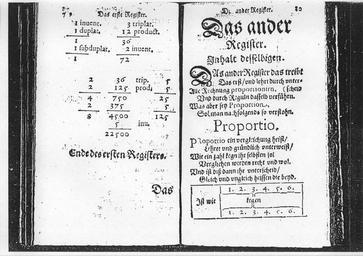 Das erste Register.
1 inuenc. 3 triplat.
1 duplat. 12 product.
1 36
1 subduplat. 2 inuenc.
1 72
2 36 trip. 5
2 125 prod. 5
4 750 25
2 375 5
8 4500 125
5 inu.
22500
Ende des ersten Registers.
Das
ander Register. 80
Das ander
Register.
Inhalt desselbigen.
Das ander Register das treibt
Das erst/ und lehrt durch unter-
Alle Rechnung proportionirn. (scheid
Und durch Reguln dasselb verführen.
Was aber sey Proportion.
Sol man nachfolgends so verstohn.
Proportio.
Proportio ein vergleichung heist/
Lehret und gründlich unterweist/
Wie ein zahl gegn ihr selbsten sol
Verglichen werden recht und wol.
Und ist diß dann ihr unterscheid/
Gleich und ungleich heissen die beyd.
1. 2. 3. 4. 5. 6.
Ist wie gegen
1. 2. 3. 4. 5. 6.